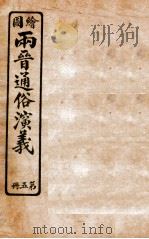 繪圖
兩晉通俗演義
第五冊